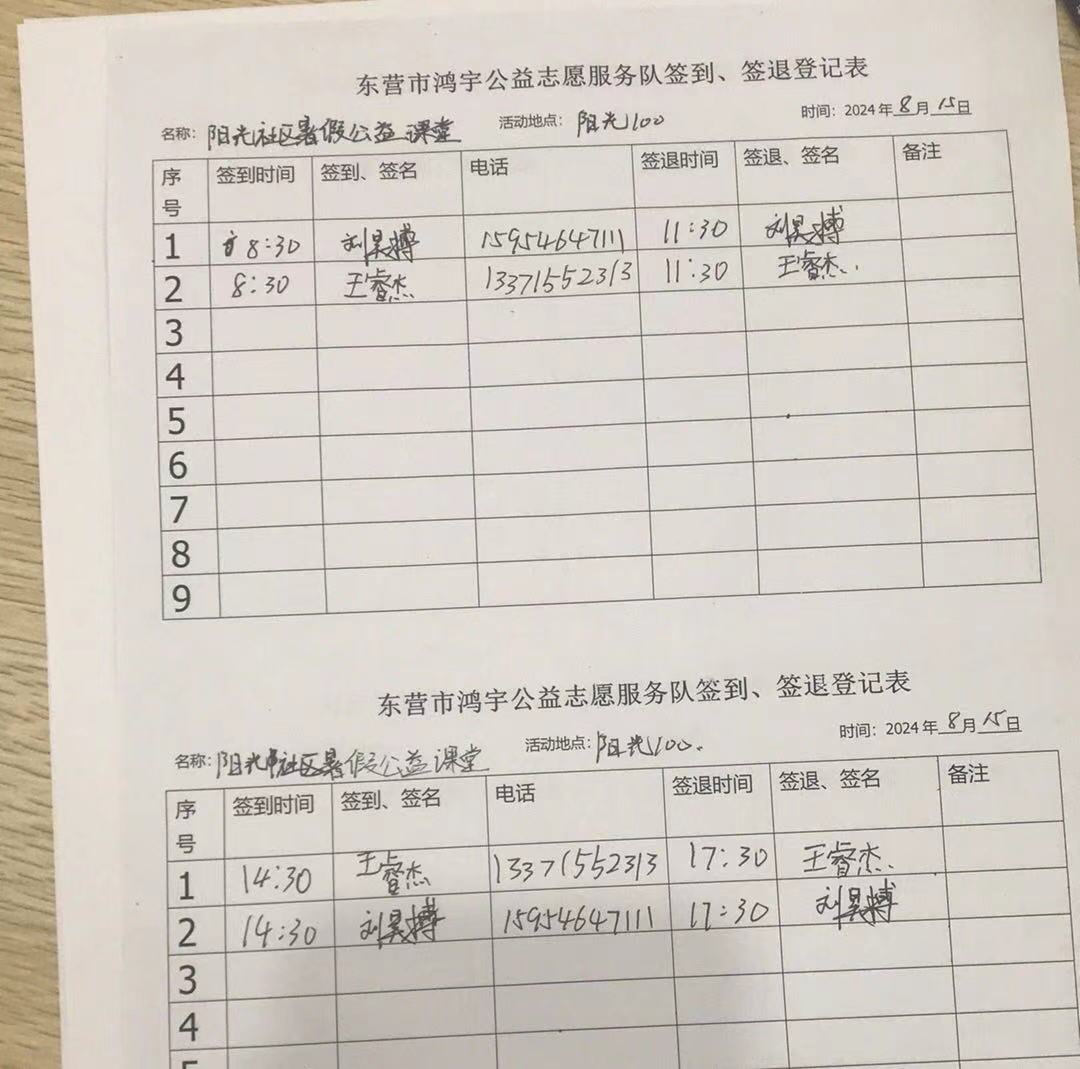 东营市鸿宇公益志愿服务队签到、签退登记表
名称: 阳光社区暑假公益课堂 活动地点: 阳光100 时间: 2024年8月15日
序号 签到时间 签到、签名 电话 签退时间 签退、签名 备注
1 8:30 刘昊搏 15954647111 11:30 刘昊搏
2 8:30 王睿杰 13371552313 11:30 王睿杰
3
4
5
6
7
8
9
东营市鸿宇公益志愿服务队签到、签退登记表
名称: 阳光社区暑假公益课堂 活动地点: 阳光100. 时间: 2024年8月15日
序号 签到时间 签到、签名 电话 签退时间 签退、签名 备注
1 14:30 王睿杰 13371552313 17:30 王睿杰
2 14:30 刘昊搏 15954647111 17:30 刘昊搏
3
4
5